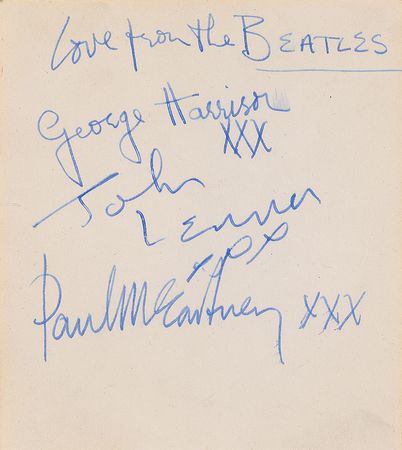 Love from the BEATLES
George Harrison
XXX
John
Lennon
xxx
Paul McCartney XXX